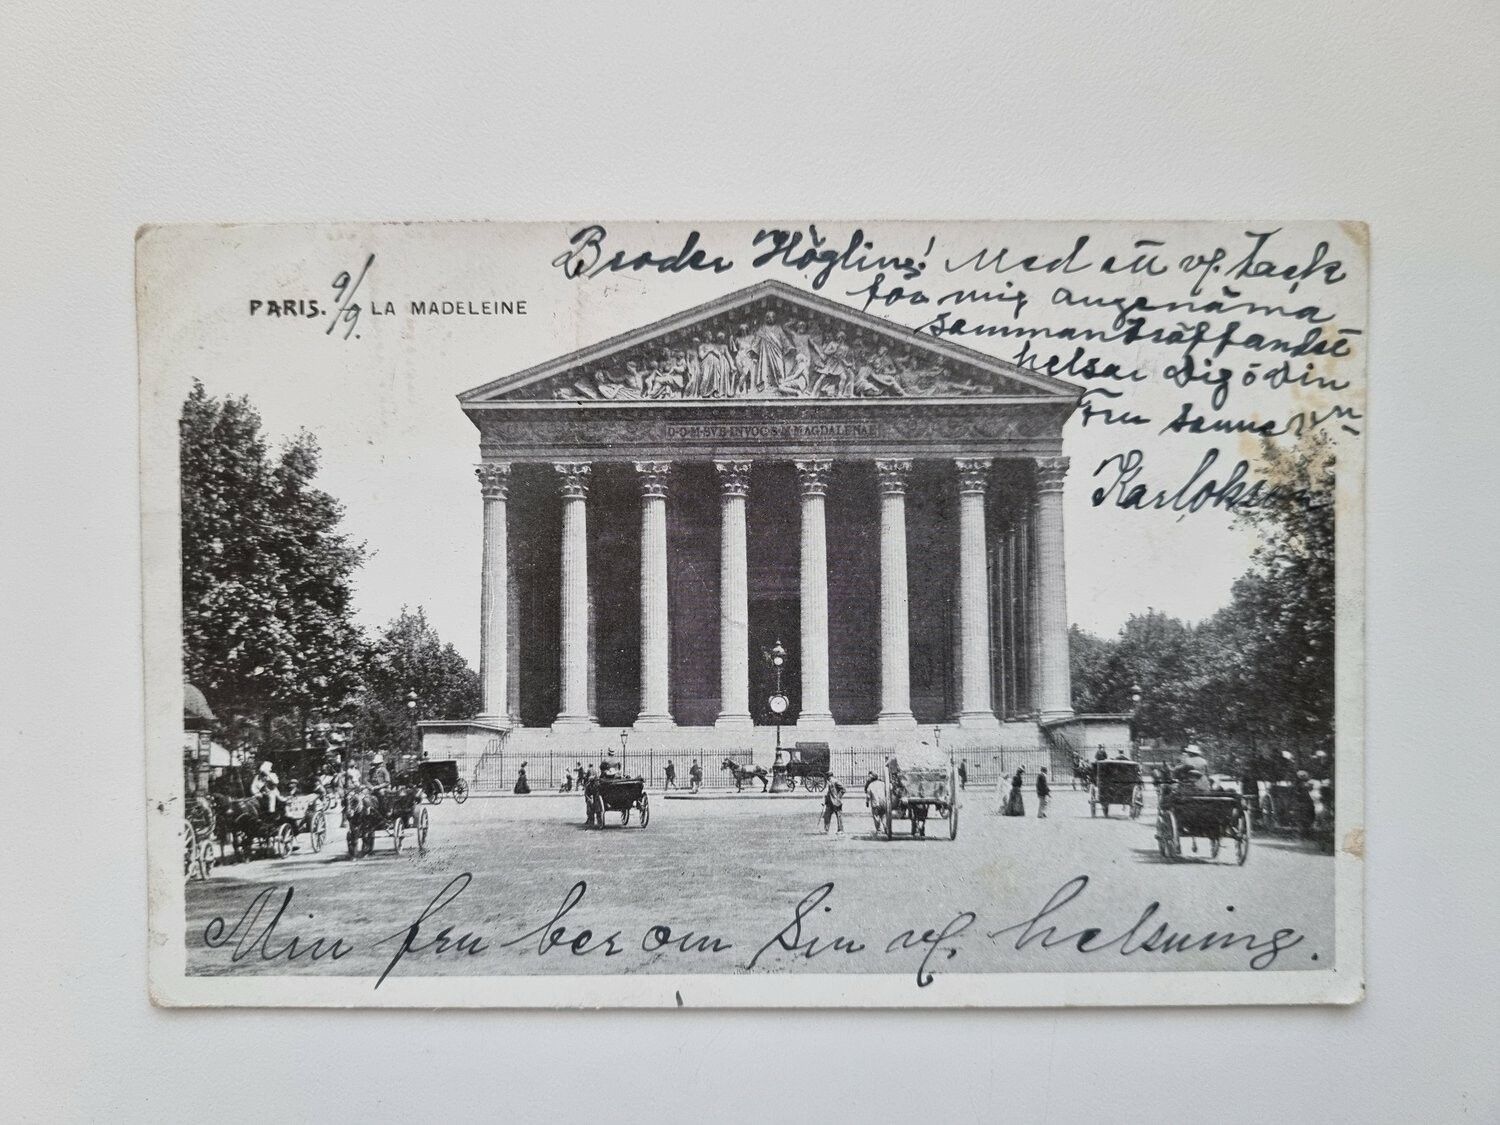 Broder Höglind! Med ett vf. tack
för mig angenäma
sammanträffandet
helsar Dig o Din
Fru samme vn
Karlokson
PARIS. 9/9. LA MADELEINE
D·O·M·SVB·INVOC·S·M·MAGDALENAE
Min fru ber om Sin vf. helsning.